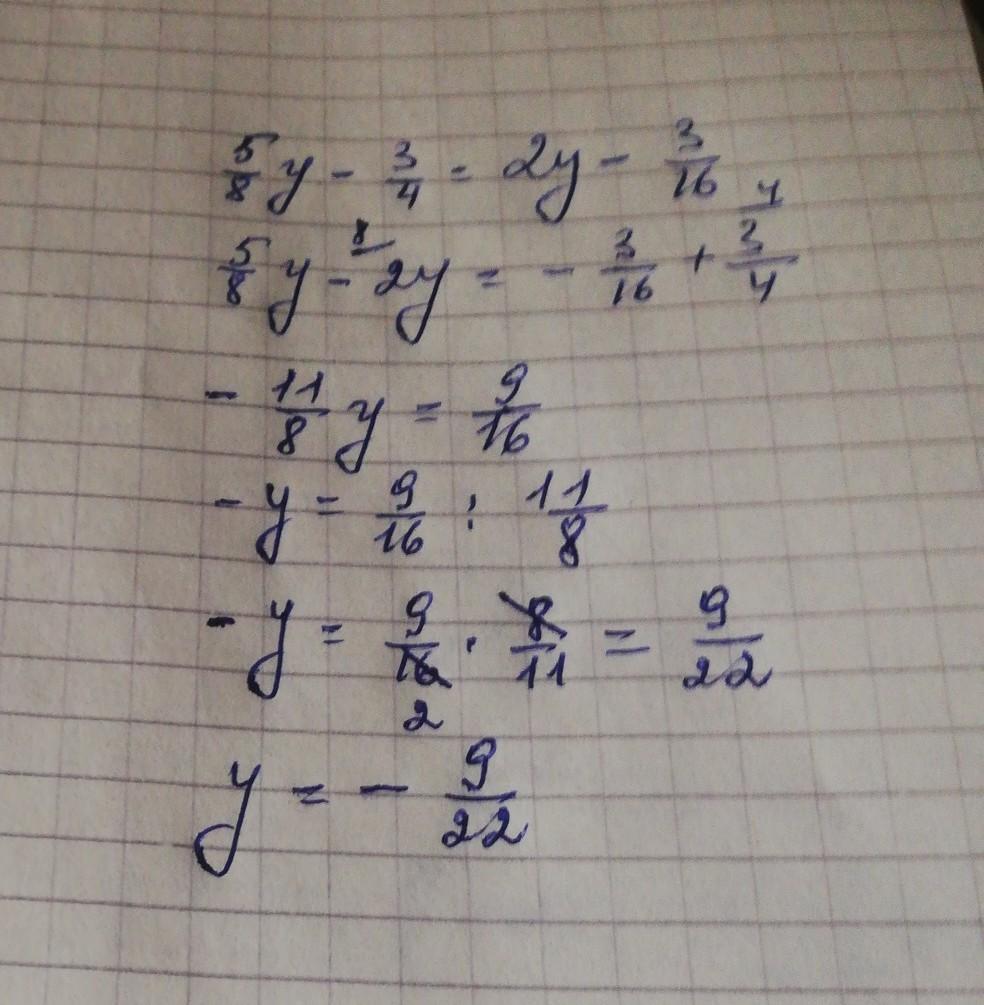 5/8 y - 3/4 = 2y - 3/16
5/8 y - 8/ 2y = - 3/16 + 4/ 3/4
- 11/8 y = 9/16
- y = 9/16 : 11/8
- y = 9/16 · 8/11 = 9/22
2
y = - 9/22